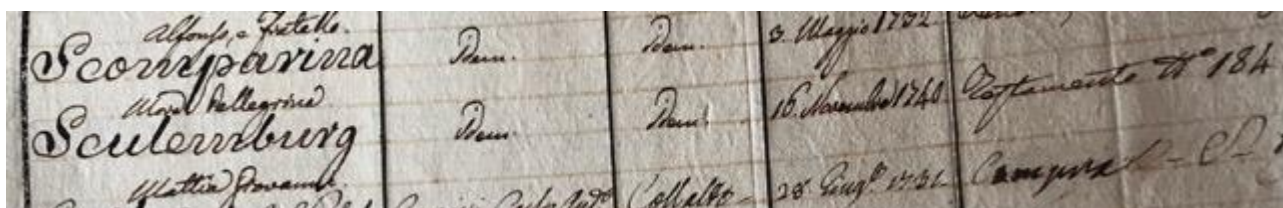 Alfonso, e Fratello.
Scomparina Idem. Idem. 3. Maggio 1732
Maria Pellegrina
Sculemburg Idem Idem. 16 Novembre 1740 Testamento N° 184
Mattia Giovanni. Collalto 28 Giug° 1731 Compra